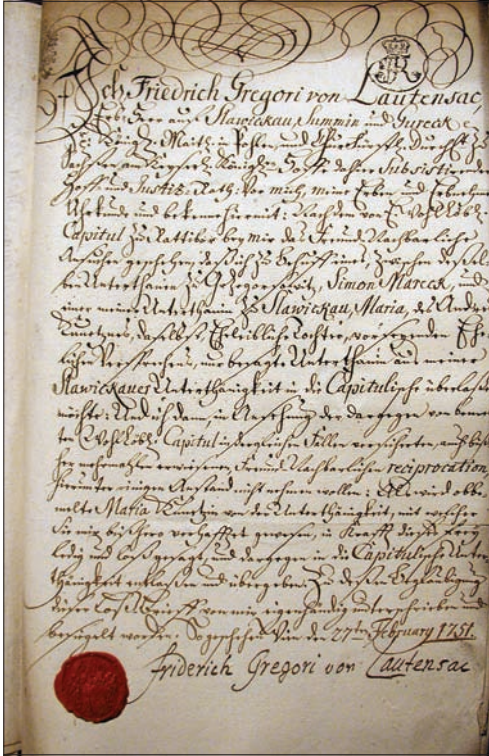 Ich Friedrich Gregori von Lautensac,
Erb-Herr auf Slawickau, Summin und Gureck
Königl. Maitt: in Pohlen, und Churfürstl. Durchl. zu
Sachsen, Subsistirender
Hoff und Justiz-Rath. Vor mich, meine Erben, und Erbnehmer
Uhrkunde und bekenne hiermit: Nachdem von E. WohlLöbl.
Capitul zu Rattibor bey mir das Freund-Nachbarliche
Ansuchen geschehen, daß ich zu zwischen
Unterthanen zu Simon Mareck, und
einer meiner Unterthanin zu Slawickau, Maria, des
daselbst, Eheleibliche Tochter, vorseyenden Ehe-
lichen Versprechens, nur besagte Unterthanin aus meiner
Slawickauer Unterthänigkeit in die Capitulische überlaßen
möchte: Und ich dann, in Ansehung der dargegen von benen-
ten WohlLöbl: Capitul in dergleichen Fällen versicherten, auch biß-
her mehrmahlen erwiesenen Freund-Nachbarlichen reciprocation,
hierunter einigen Anstand nicht nehmen wollen: Als wird obbe-
melte Maria von der Unterthänigkeit, mit welcher
Sie mir bißhero verhafftet gewesen, in Krafft dieses frey,
ledig und loß gesagt, und dargegen in die Capitulische Unter-
thänigkeit entlaßen und übergeben. Zu deßen Beglaubigung
dieser Loß-Brieff von mir eigenhändig unterschrieben und
besiegelt worden. So geschehen den 27ten February 1751.
Friderich Gregori von Lautensac